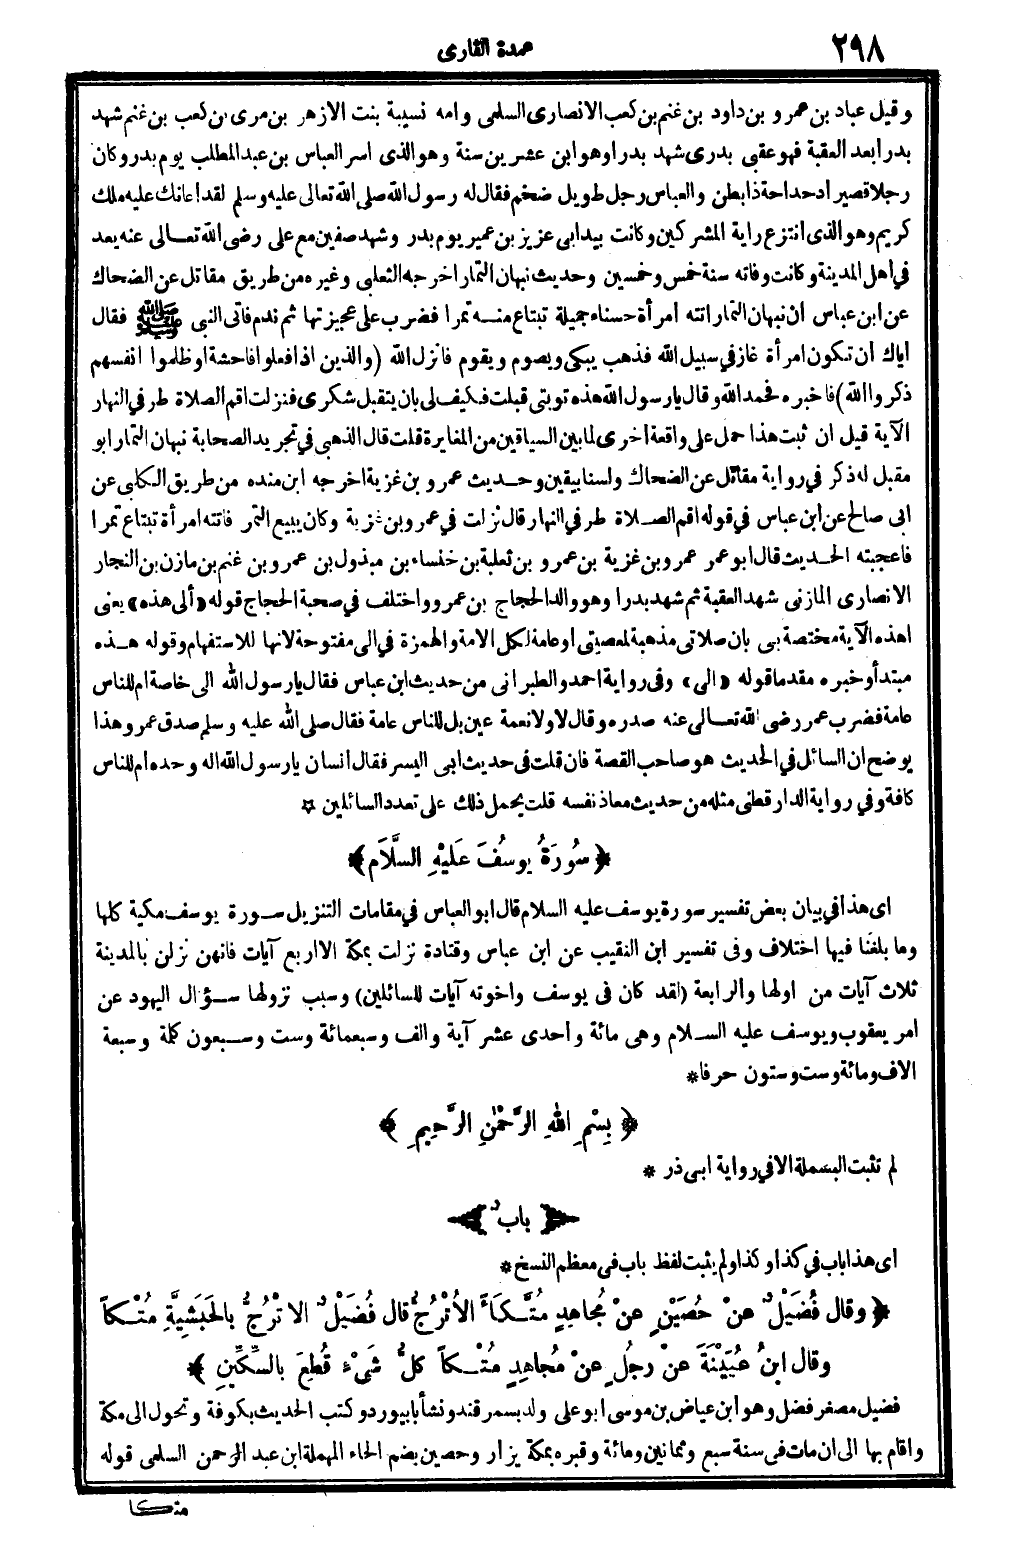 ٢٩٨
عمدة القارى
وقيل عباد بن عمرو بن داود بن غنم بن كعب الانصارى السلمى وامه نسيبة بنت الازهر بن مرى بن كعب بن غنم شهد
بدرا بعد العقبة فهو عقبى بدرى شهد بدرا وهو ابن عشرين سنة وهو الذى اسر العباس بن عبد المطلب يوم بدر وكان
رجلا قصيرا دحداحة ذا بطن والعباس رجل طويل ضخم فقال له رسول الله صلى الله تعالى عليه وسلم لقد اعانك عليه ملك
كريم وهو الذى انتزع راية المشركين وكانت بيد ابى عزيز بن عمير يوم بدر وشهد صفين مع على رضى الله تعالى عنه يعد
في أهل المدينة وكانت وفاته سنة خمس وخمسين وحديث نبهان التمار اخرجه الثعلبى وغيره من طريق مقاتل عن الضحاك
عن ابن عباس أن نبهان التمار اتته امرأة حسناء جميلة تبتاع منه تمرا فضرب على عجيزتها ثم ندم فاتى النبى ﷺ فقال
اياك ان تكون امرأة غاز في سبيل الله فذهب يبكى ويصوم ويقوم فانزل الله (والذين اذا فعلوا فاحشة او ظلموا انفسهم
ذكروا الله) فاخبره فحمد الله وقال يا رسول الله هذه توبتى قبلت فكيف لى بان يتقبل شكرى فنزلت اقم الصلاة طرفي النهار
الآية قيل ان ثبت هذا حمل على واقعة أخرى لما بين السياقين من المغايرة قلت قال الذهبى في تجريد الصحابة نبهان التمار ابو
مقبل له ذكر في رواية مقاتل عن الضحاك وليسا بيقين وحديث عمرو بن غزية اخرجه ابن منده من طريق الكلبى عن
ابى صالح عن ابن عباس في قوله اقم الصلاة طرفي النهار قال نزلت في عمرو بن غزية وكان يبيع التمر فاتته امرأة تبتاع تمرا
فاعجبته الحديث قال ابو عمر عمرو بن غزية بن عمرو بن ثعلبة بن خنساء بن مبذول بن عمرو بن غنم بن مازن بن النجار
الانصارى المازنى شهد العقبة ثم شهد بدرا وهو والد الحجاج بن عمرو واختلف في صحبة الحجاج قوله «ألى هذه» يعنى
اهذه الآية مختصة بى بان صلاتى مذهبة لمعصيتى أو عامة لكل الامة والهمزة في الى مفتوحة لانها للاستفهام وقوله هذه
مبتدأ وخبره مقدما قوله «الى» وفى رواية احمد والطبرانى من حديث ابن عباس فقال يا رسول الله الى خاصة ام للناس
عامة فضرب عمر رضى الله تعالى عنه صدره وقال لا ولا نعمة عين بل للناس عامة فقال صلى الله عليه وسلم صدق عمر وهذا
يوضح ان السائل في الحديث هو صاحب القصة فان قلت فى حديث ابى اليسر فقال انسان يا رسول الله اله وحده ام للناس
كافة وفي رواية الدارقطنى مثله من حديث معاذ نفسه قلت يحمل ذلك على تعدد السائلين ✡
﴿ سُورَةُ يُوسُفَ عَلَيْهِ السَّلَام ﴾
اى هذا في بيان بعض تفسير سورة يوسف عليه السلام قال ابو العباس في مقامات التنزيل سورة يوسف مكية كلها
وما بلغنا فيها اختلاف وفى تفسير ابن النقيب عن ابن عباس وقتادة نزلت بمكة الا اربع آيات فانهن نزلن بالمدينة
ثلاث آيات من اولها والرابعة (لقد كان فى يوسف واخوته آيات للسائلين) وسبب نزولها سؤال اليهود عن
امر يعقوب ويوسف عليه السلام وهى مائة واحدى عشر آية والف وسبعمائة وست وسبعون كلمة وسبعة
الاف ومائة وست وستون حرفا *
﴿ بِسْمِ اللهِ الرَّحْمٰنِ الرَّحِيمِ ﴾
لم تثبت البسملة الا في رواية ابى ذر *
باب
اى هذا باب في كذا وكذا ولم يثبت لفظ باب فى معظم النسخ *
﴿ وقال فُضَيْلٌ عنْ حُصَيْنٍ عنْ مُجاهِدٍ مُتَّكَأً الأُتْرُجُّ قال فُضَيْلٌ الاتْرُجُّ بالحَبَشِيَّةِ مُتْكاً
وقال ابنُ عُيَيْنَةَ عنْ رجُلٍ عنْ مُجاهِدٍ مُتْكاً كلُّ شَىْءٍ قُطِعَ بالسِّكِّينِ ﴾
فضيل مصغر فضل وهو ابن عياض بن موسى ابو على ولد بسمرقند ونشأ بابيورد وكتب الحديث بكوفة وتحول الى مكة
واقام بها الى ان مات فى سنة سبع وثمانين ومائة وقبره بمكة يزار وحصين بضم الحاء المهملة ابن عبد الرحمن السلمى قوله
متكا